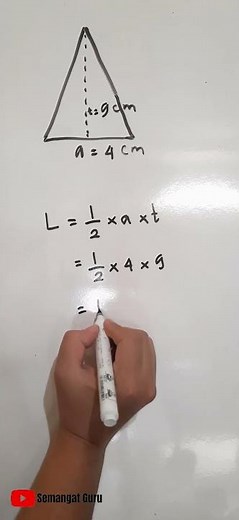 t=9 cm
a = 4 cm
L = 1/2 × a × t
= 1/2 × 4 × 9
=
Semangat Guru